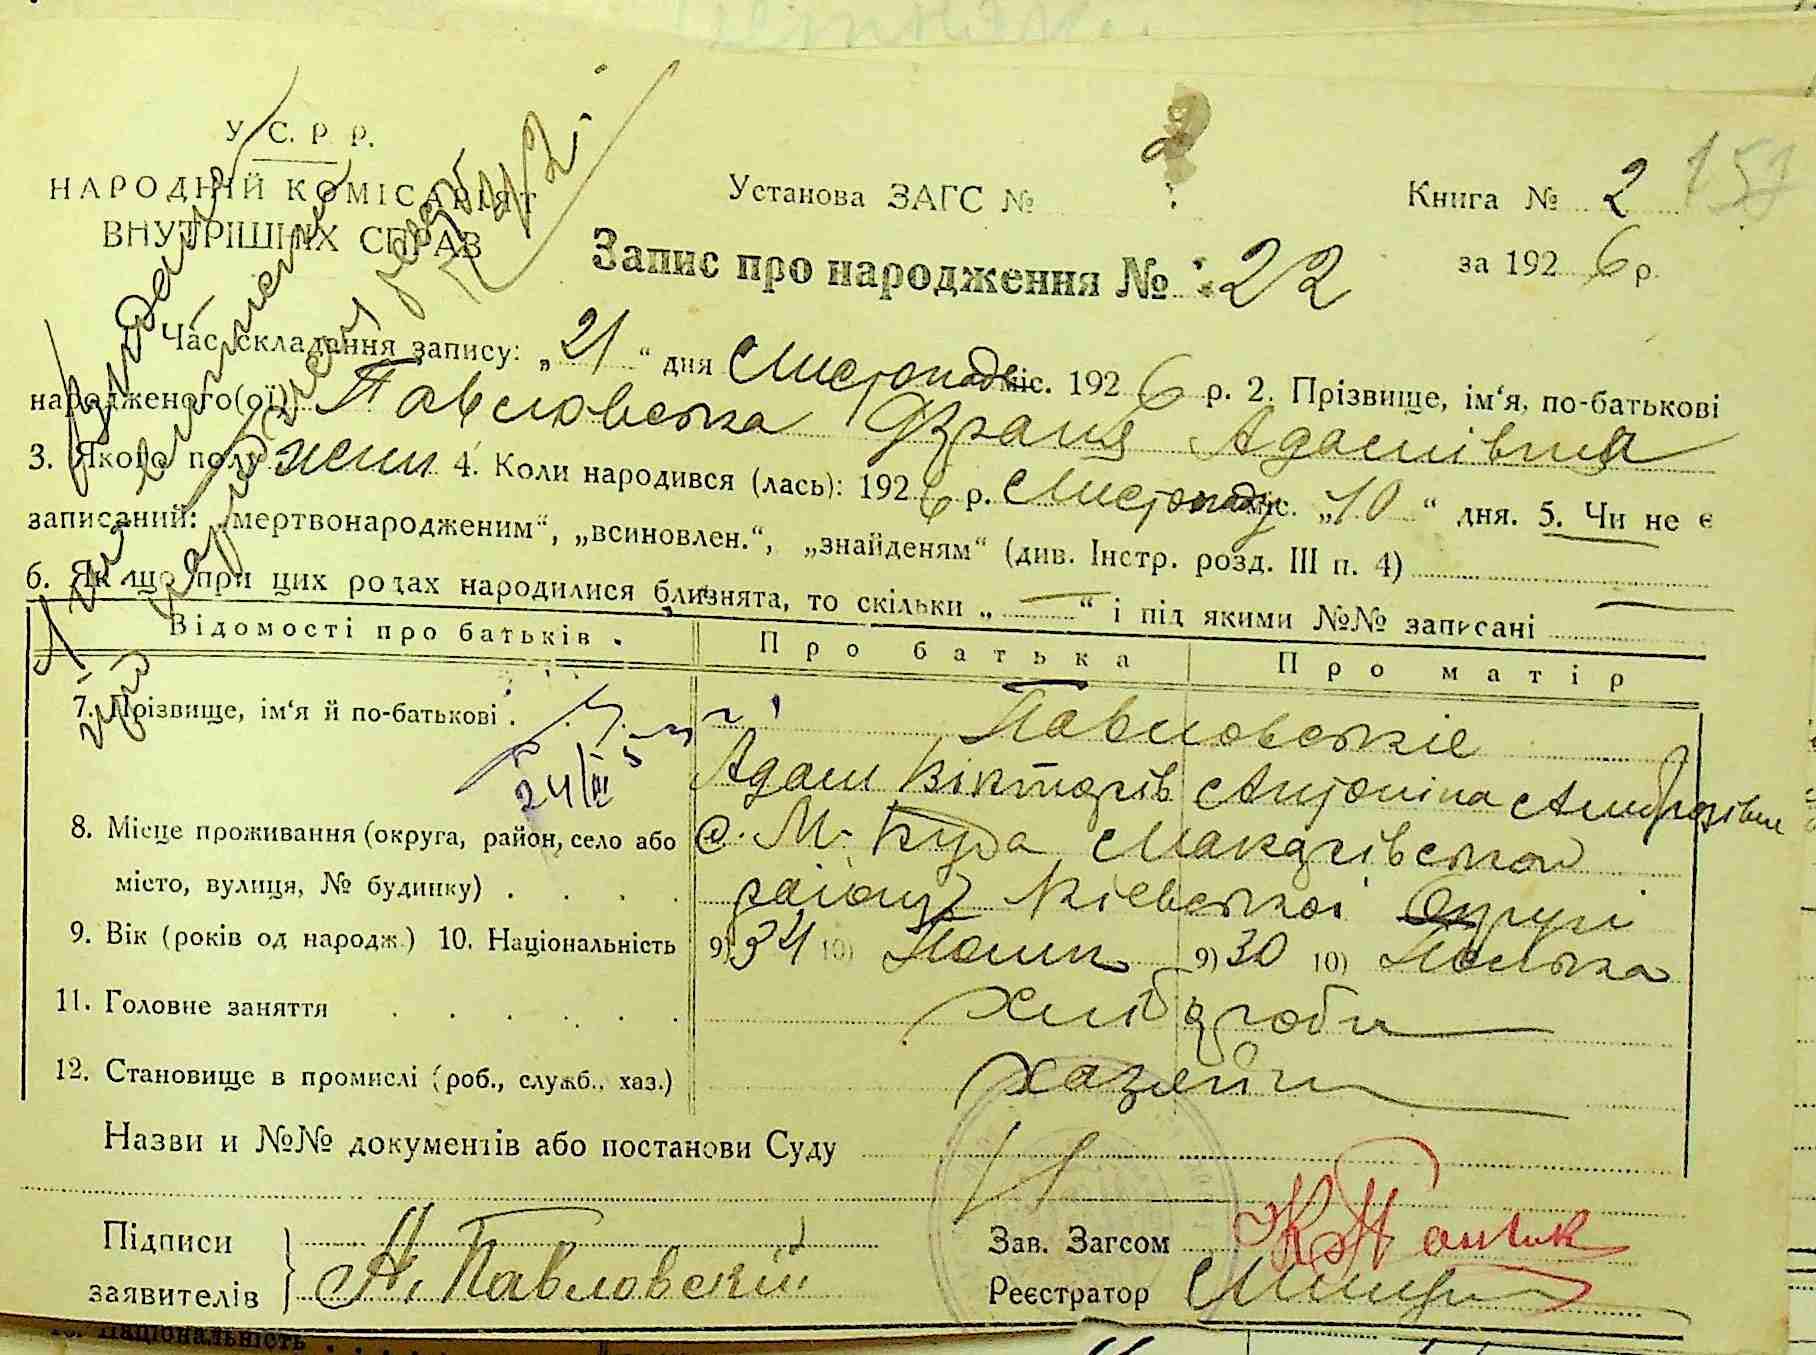 У. С. Р. Р.
НАРОДНІЙ КОМІСАРІЯТ
ВНУТРІШНІХ СПРАВ
Установа ЗАГС №
Книга № 2
157
Запис про народження № 22
за 1926 р.
1. Час складання запису: „21“ дня Листопад міс. 1926 р. 2. Прізвище, ім‘я, по-батькові
народженого(ої) Павловська Франя Адамівна
3. Якого полу жін 4. Коли народився (лась): 1926 р. Листопаду міс. „10“ дня. 5. Чи не є
записаний: „мертвонародженим“, „всиновлен.“, „знайденям“ (див. Інстр. розд. III п. 4)
6. Як що при цих родах народилися близнята, то скільки „—“ і під якими №№ записані —
Відомості про батьків.
Про батька
Про матір
7. Прізвище, ім‘я й по-батькові
Павловські
24/III
Адам Вікторів Антоніна Амброзівна
8. Місце проживання (округа, район, село або
місто, вулиця, № будинку)
с. М. Буда Макарівського
району Київської Округи
9. Вік (років од народж.) 10. Національність
9) 34 10) Поляк 9) 30 10) Полька
11. Головне заняття
хлібороби
12. Становище в промислі (роб., служб., хаз.)
хазяїни
Назви и №№ документів або постанови Суду
Підписи
заявителів
А. Павловскій
Зав. Загсом
Реєстратор
10. Національність